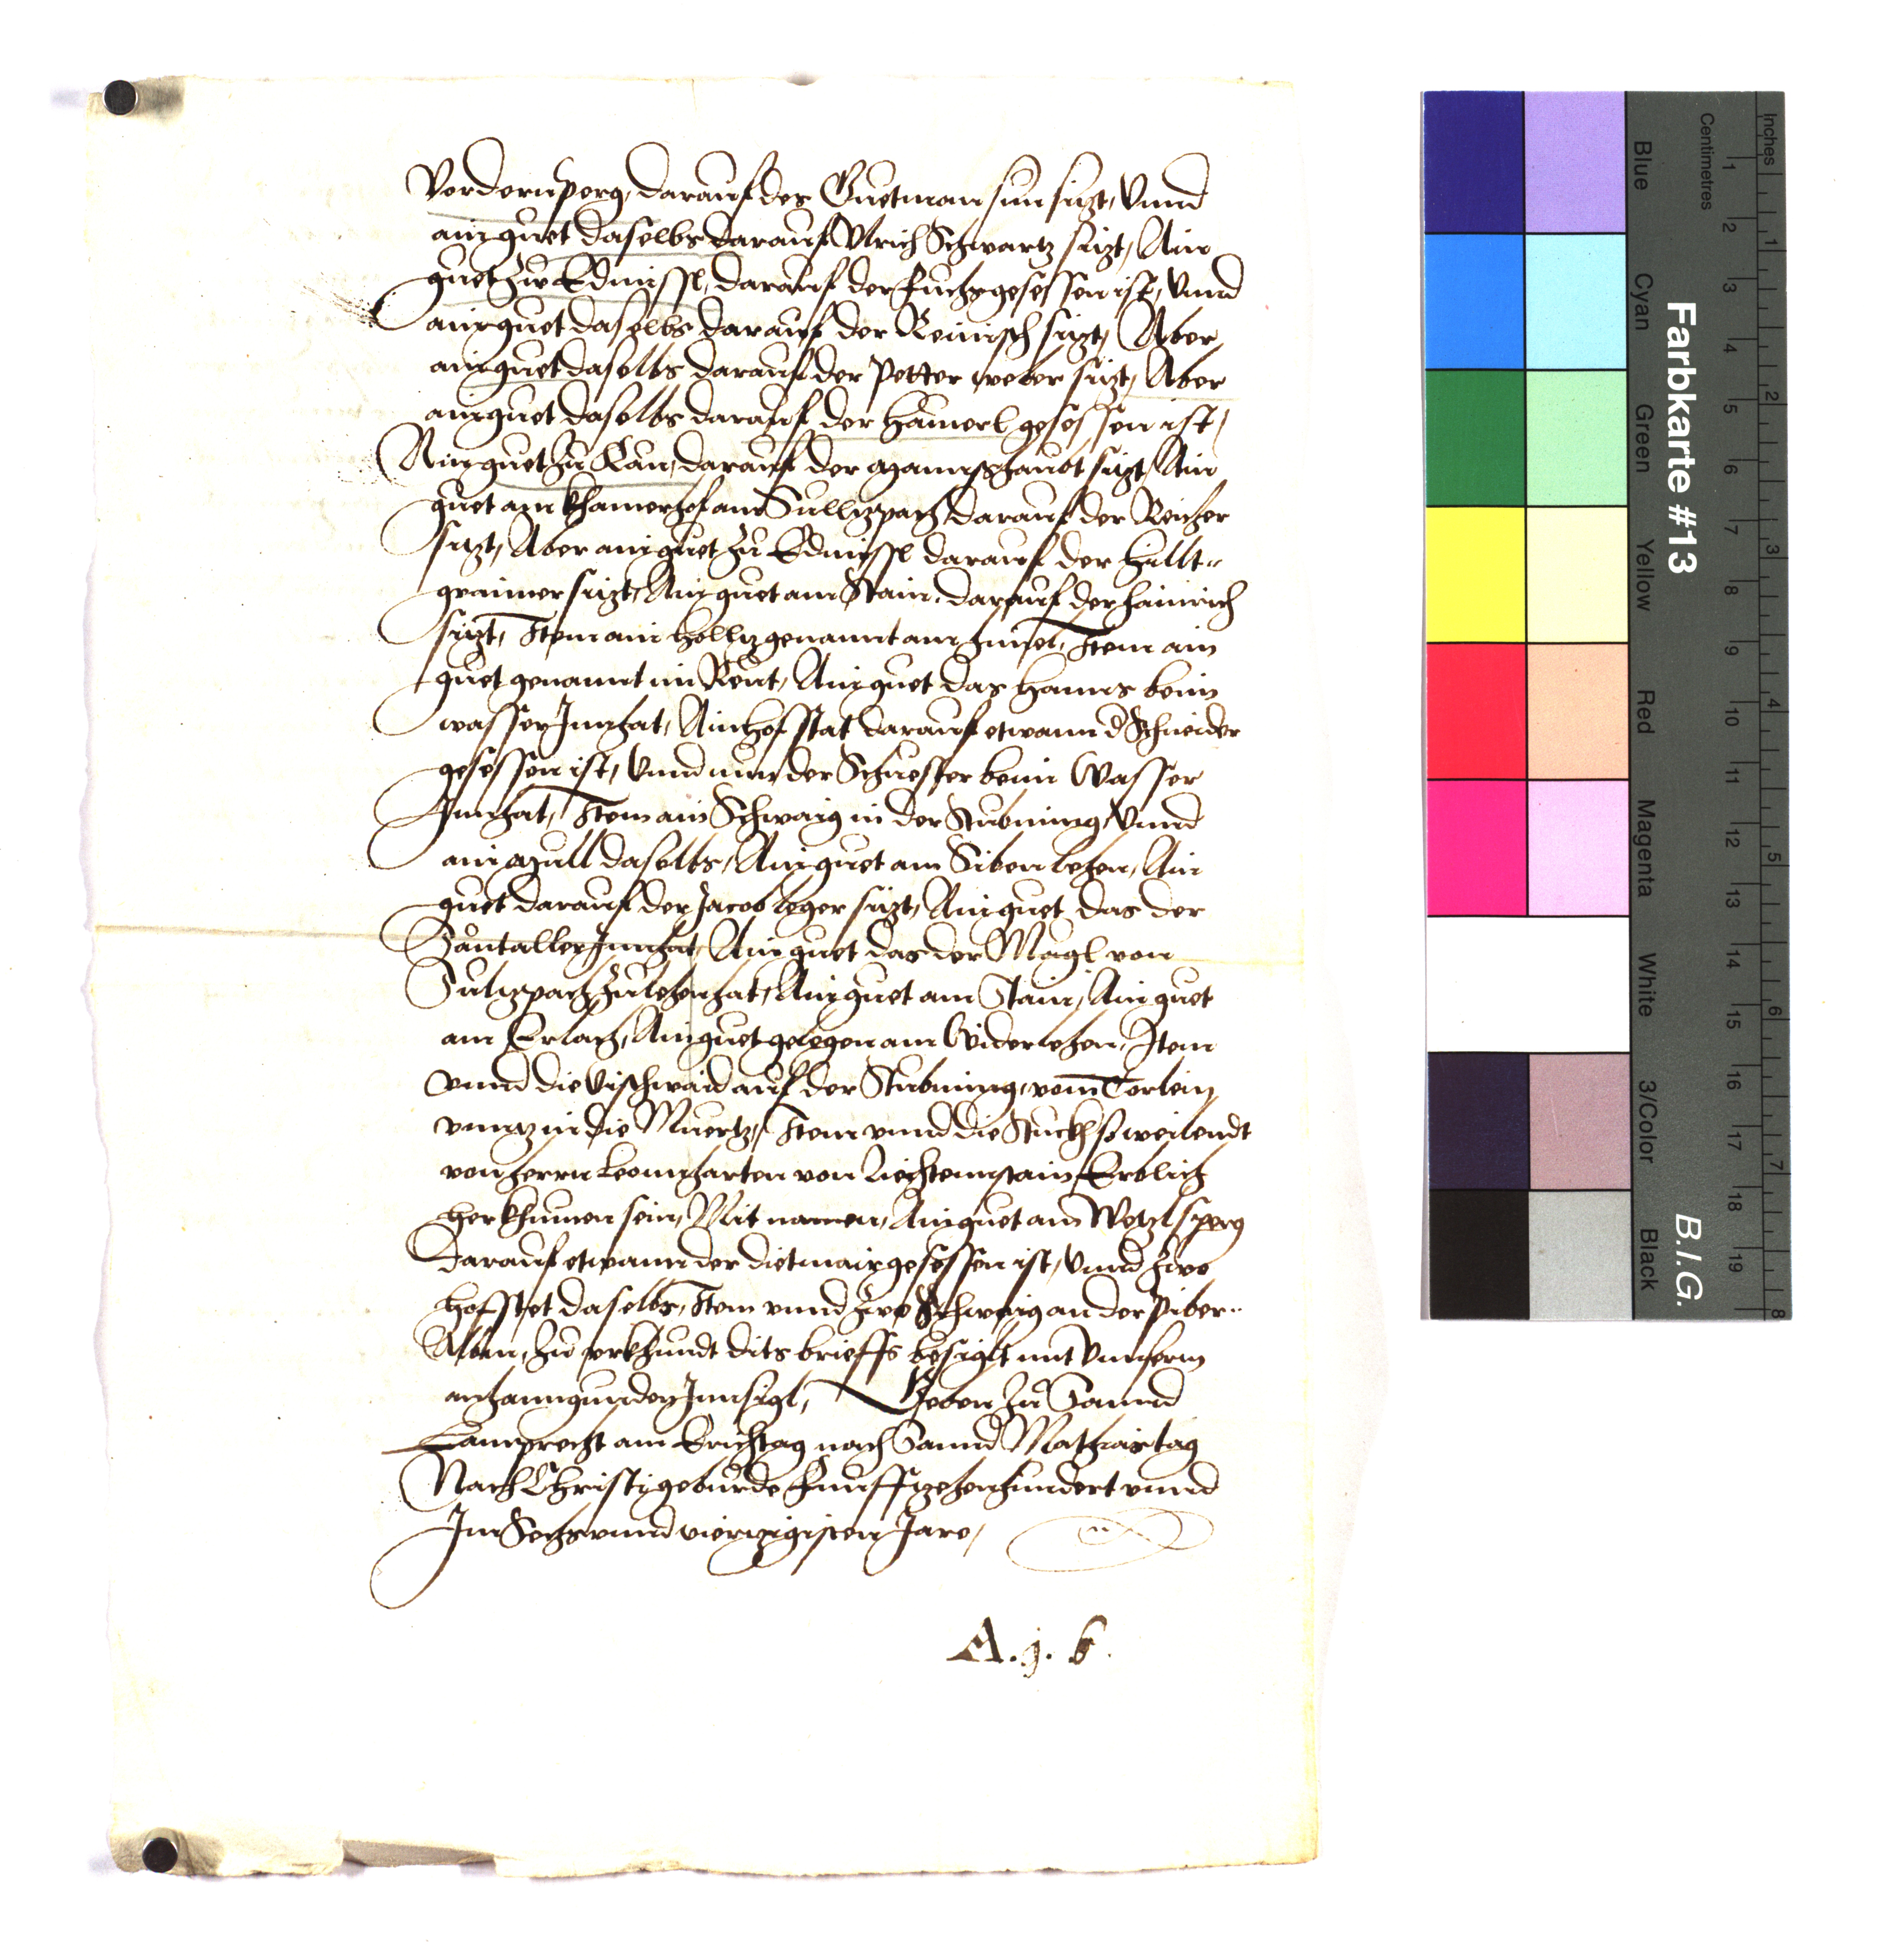 Vordernperg, darauf des Guetman sun sizt, Vnnd
ain guet daselbs darauf Vlrich Schwartz sizt, Ain
guet zw Edmissl, darauf der Fuchs gesessen ist, Vnnd
ain guet daselbs darauf der Reinisch sizt, Aber
ain guet daselbs darauf der Petter weber sizt, Aber
ain guet daselbs darauf der Hamerl gesessen ist,
Ain guet zu Lan, darauf der sizt, Ain
guet am Khamerhof am Sullzpach, darauf der Reicher
sizt, Aber ain guet zu Edmissl darauf der Hallt-
grainer sizt, Ain guet am Stain, darauf der Hainrich
sizt, Item ain Hollz genannt am, Item ain
guet genannt im Reut, Ain guet das Hanns beim
wasser Innhat, Ain Hofstat darauf etwann d Schneider
gesessen ist, Vnnd nun der Schuester beim Wasser
Innhat, Item ain Schwaig in der Stubming, Vnnd
ain Mull daselbs, Ain guet am Siben lehen, Ain
guet darauf der Jacob leger sizt, Ain guet das der
Innhat, Ain guet das der Mägl von
Sulzpach zu lehen hat, Ain guet am Stain, Ain guet
am Erlach, Ain guet gelegen am Widerlehen, Item
vnnd die Vischwaid auf der Stubming, vom Torlein
vnntz in die Muertz, Item vnnd die Stuckh so weilendt
von herrn Leonnharten von Liechtennstain Erblich
herkhumen sein, Mit namen, Ain guet am Wetzlsperg
darauf etwann der dietmair gesessen ist, Vnnd zwo
hofstet daselbs, Item vnnd zwo Schwaig an der Piber-
Alben, Zu vrkhundt dits brieffs besiglt mit Vnnserm
anhanngunden Innsigl, Geben zu Sannd
Lamprecht am Erichtag nach Sannd Mathias tag
Nach Christi geburde Funffzehenhundert vnnd
Im Sechs vnnd vierzigisten Jare,
A. j. 6.
Farbkarte #13
B.I.G.
Centimetres
Inches
1 2 3 4 5 6 7 8 9 10 11 12 13 14 15 16 17 18 19
1 2 3 4 5 6 7 8
Blue
Cyan
Green
Yellow
Red
Magenta
White
3/Color
Black